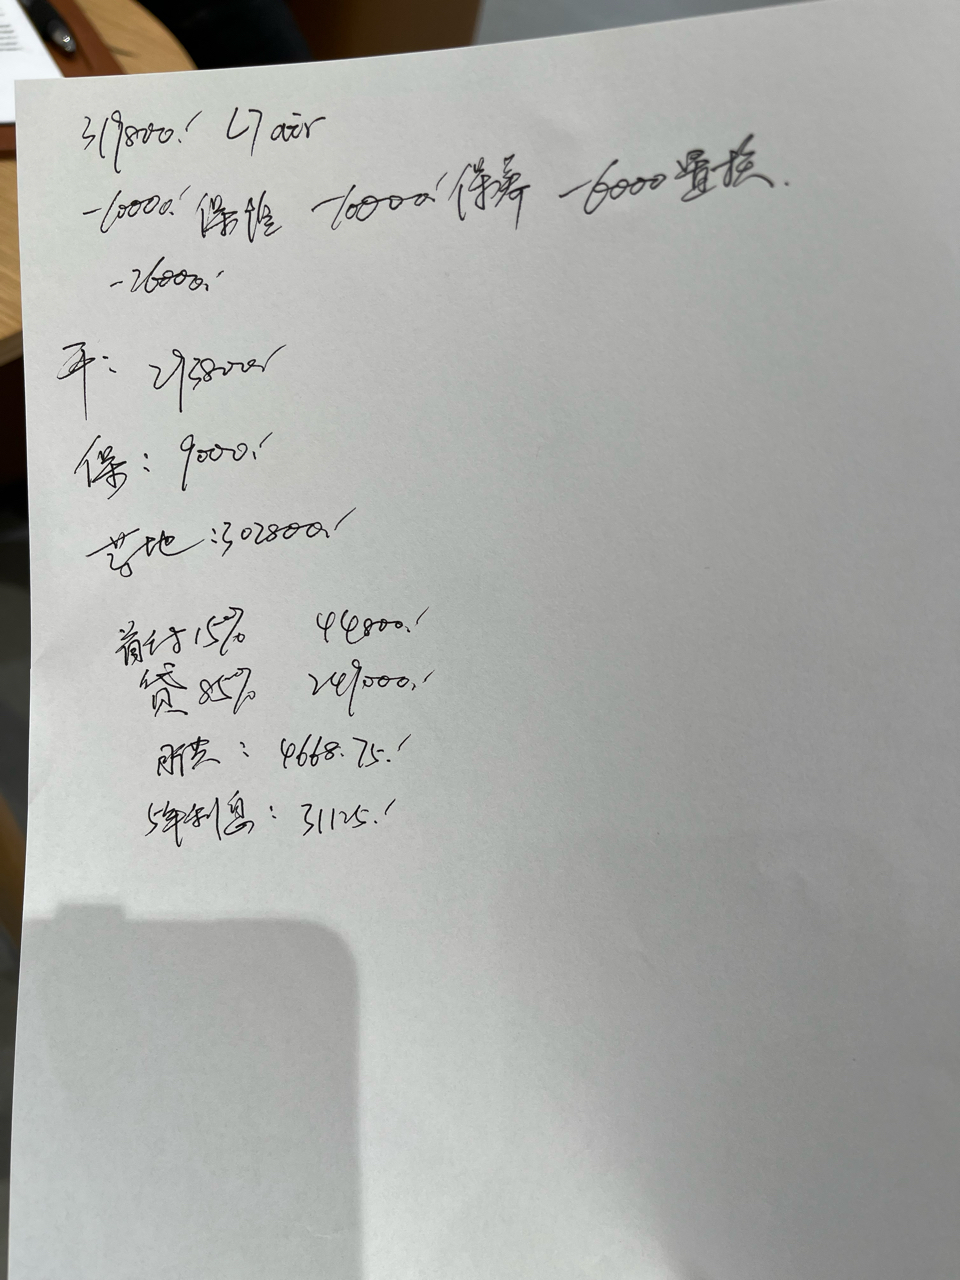 319800.- L7 air
-10000.- 保险 -10000.- 保养 -6000 置换.
-26000.-
车: 293800.-
保: 9000.-
落地: 302800.-
首付15% 44800.-
贷 85% 249000.-
月供: 4668.75.-
5年利息: 31125.-